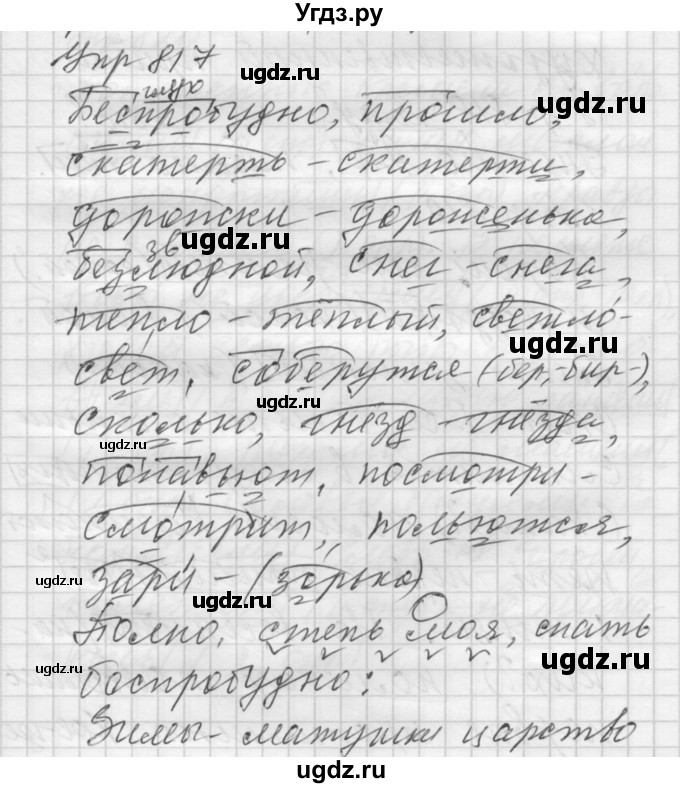 Угдз.ру
Упр 817
ugdz.ru
глух
ugdz.ru
Беспробудно, прошло,
скатерть - скатерти,
дорожки - дороженька,
ugdz.ru
зв
безлюдной, снег - снега,
тепло - тёплый, светло-
свет, соберутся (бер,-бир-),
ugdz.ru
ugdz.ru
сколько, гнёзд - гнезда,
ugdz.ru
понавьют, посмотри -
смотрит, польются,
ugdz.ru
зари - (зорька)
ugdz.ru
Полно, степь моя, спать
ugdz.ru
ugdz.ru
беспробудно:
Зимы - матушки царство
ugdz.ru